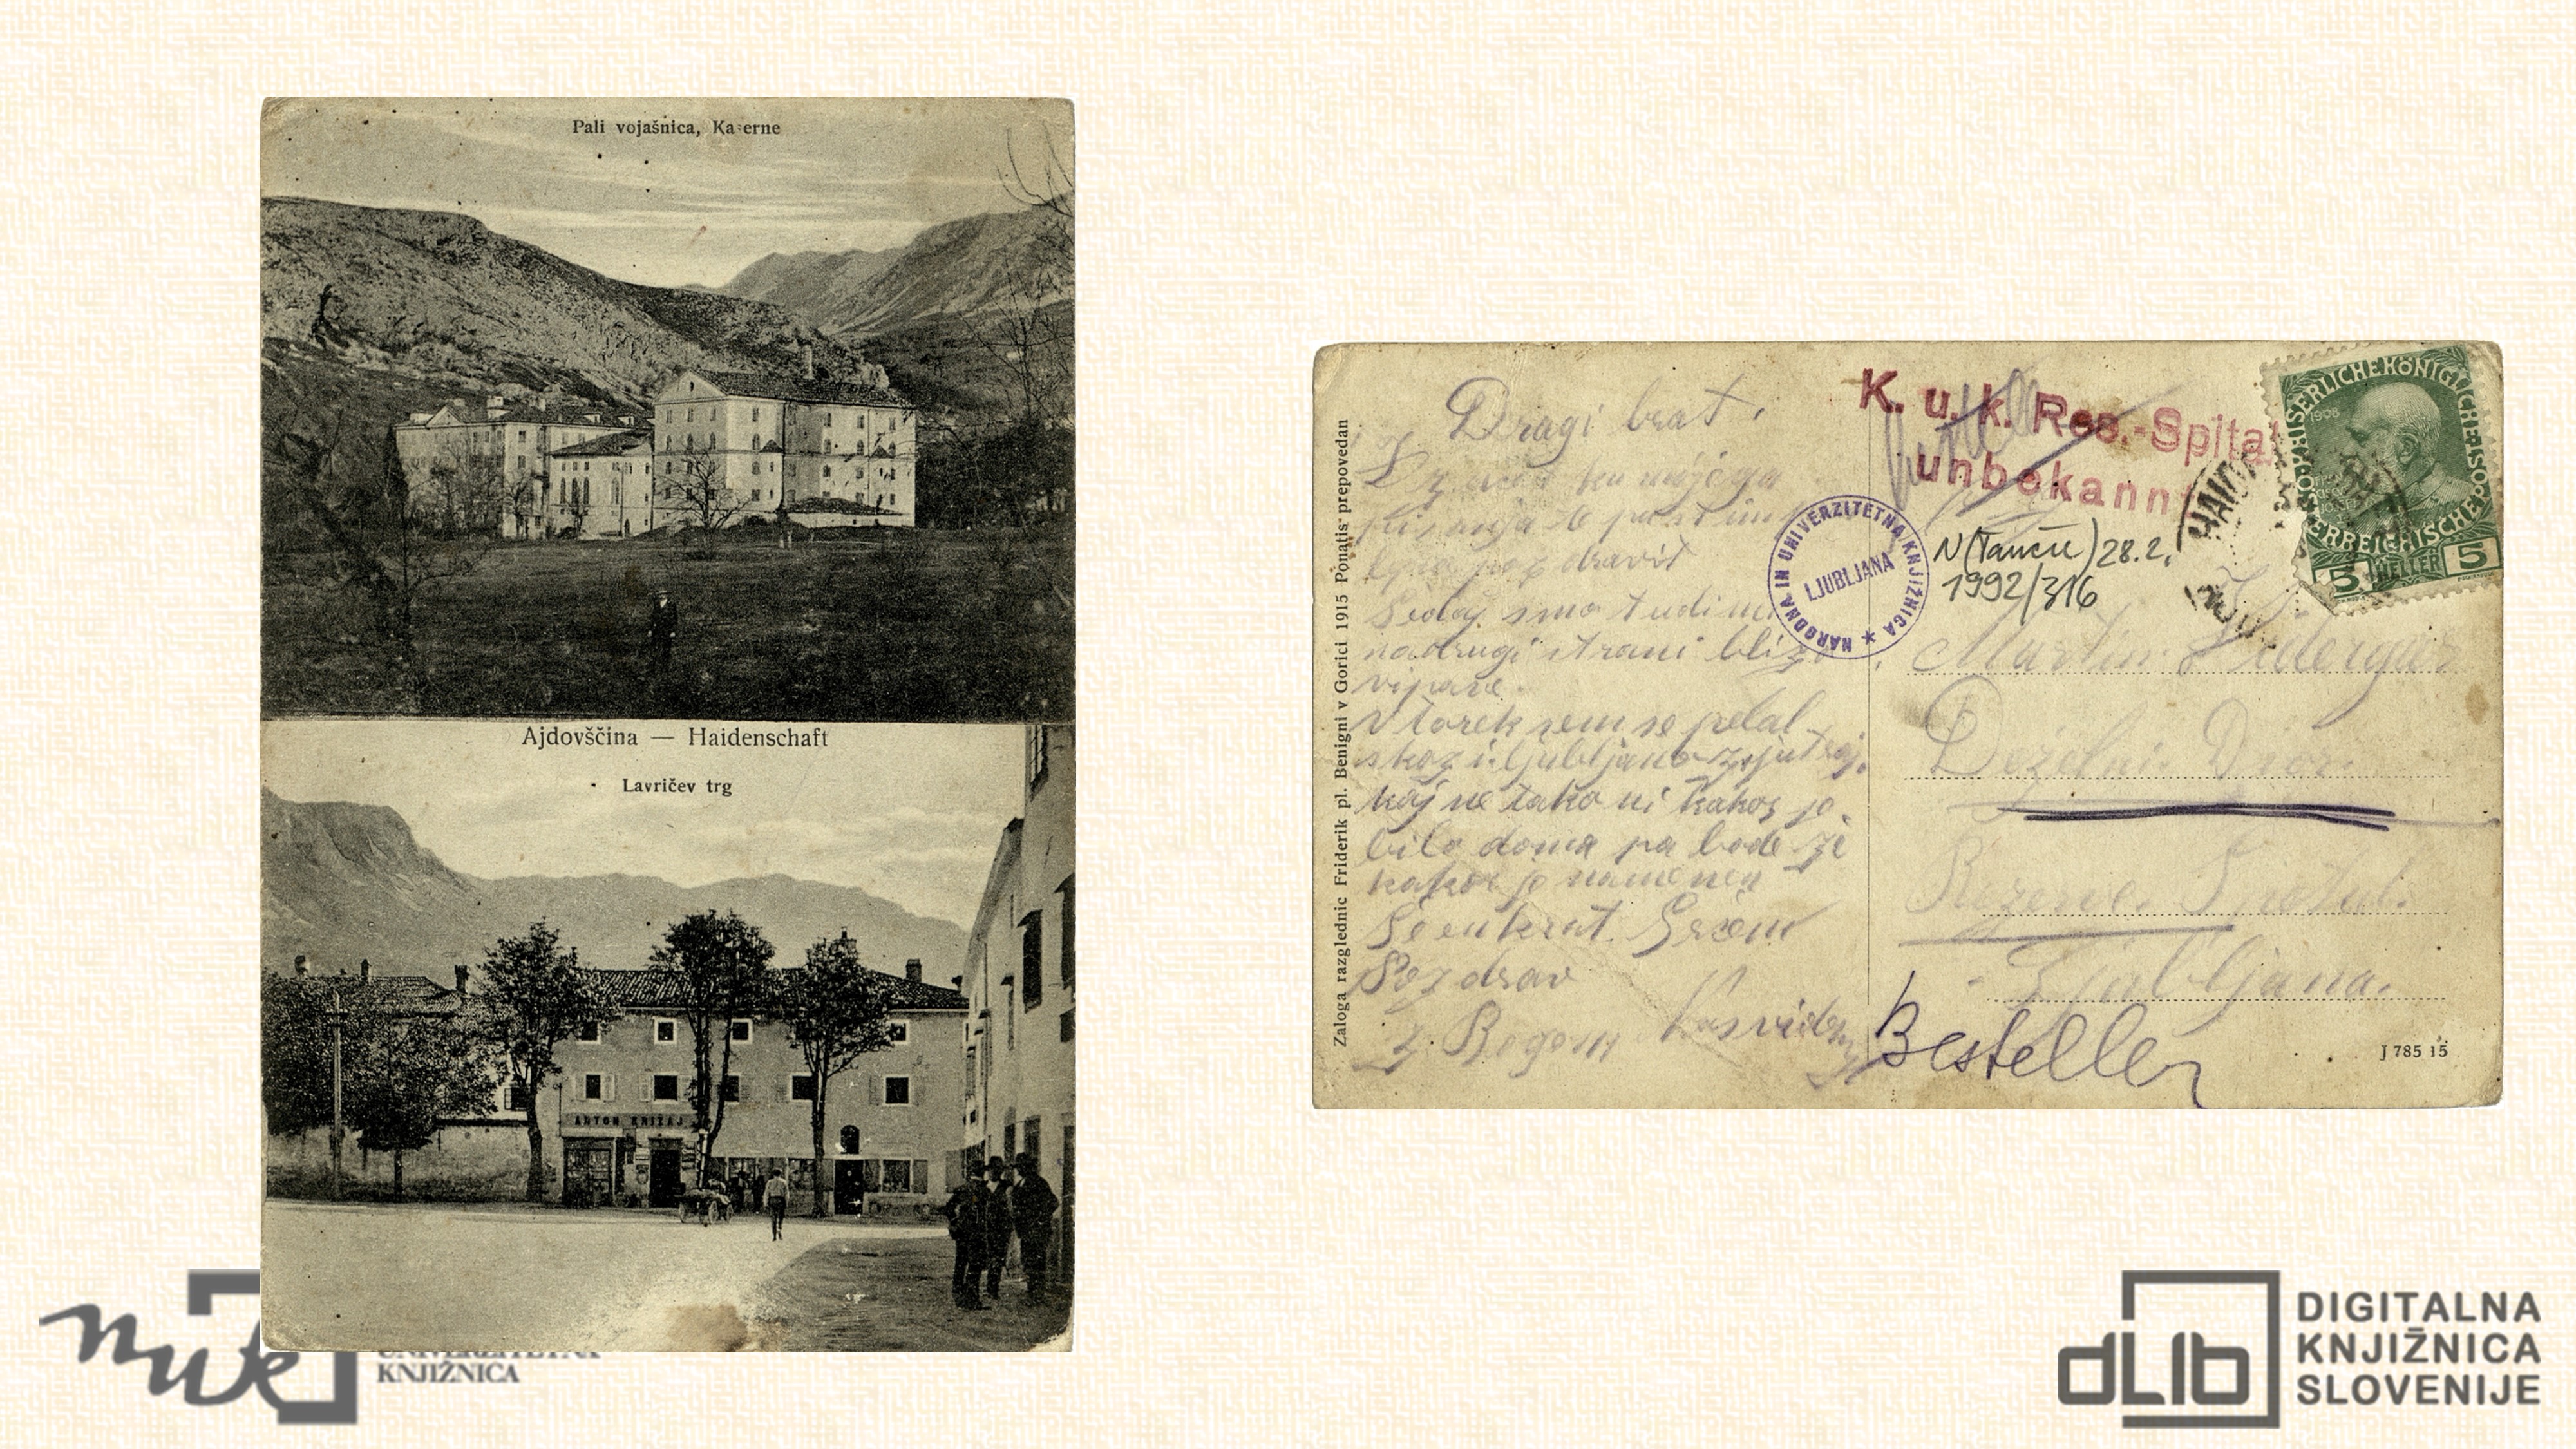 Pali vojašnica, Kaserne
Ajdovščina — Haidenschaft
Lavričev trg
ANTON KRIŽAJ
KNJIŽNICA
Zaloga razglednic Friderik pl. Benigni v Gorici 1915 Ponatis prepovedan
Dragi brat.
pozdravit
Sedaj smo tudi mi
na drugi strani blizo
vipave.
V torek sem se pelal
skozi ljubljano zjutraj.
kaj ne tako ni kakor je
bilo doma pa bode že
kakor je namenen
Še enkrat Srčen
Pozdrav
Z Bogom Nasvidenj
K. u. k. Res.-Spital
unbekannt
NARODNA IN UNIVERZITETNA KNJIŽNICA
LJUBLJANA
N(Tančič) 28.2.
1992/316
KAISERLICHE KÖNIGLICHE ÖSTERREICHISCHE POST
1908
5 HELLER 5
Martin
Deželni Dvor.
Rezerve. Spital.
Ljubljana.
Besteller
J 785 15
nuk
DIGITALNA
KNJIŽNICA
SLOVENIJE
dLib